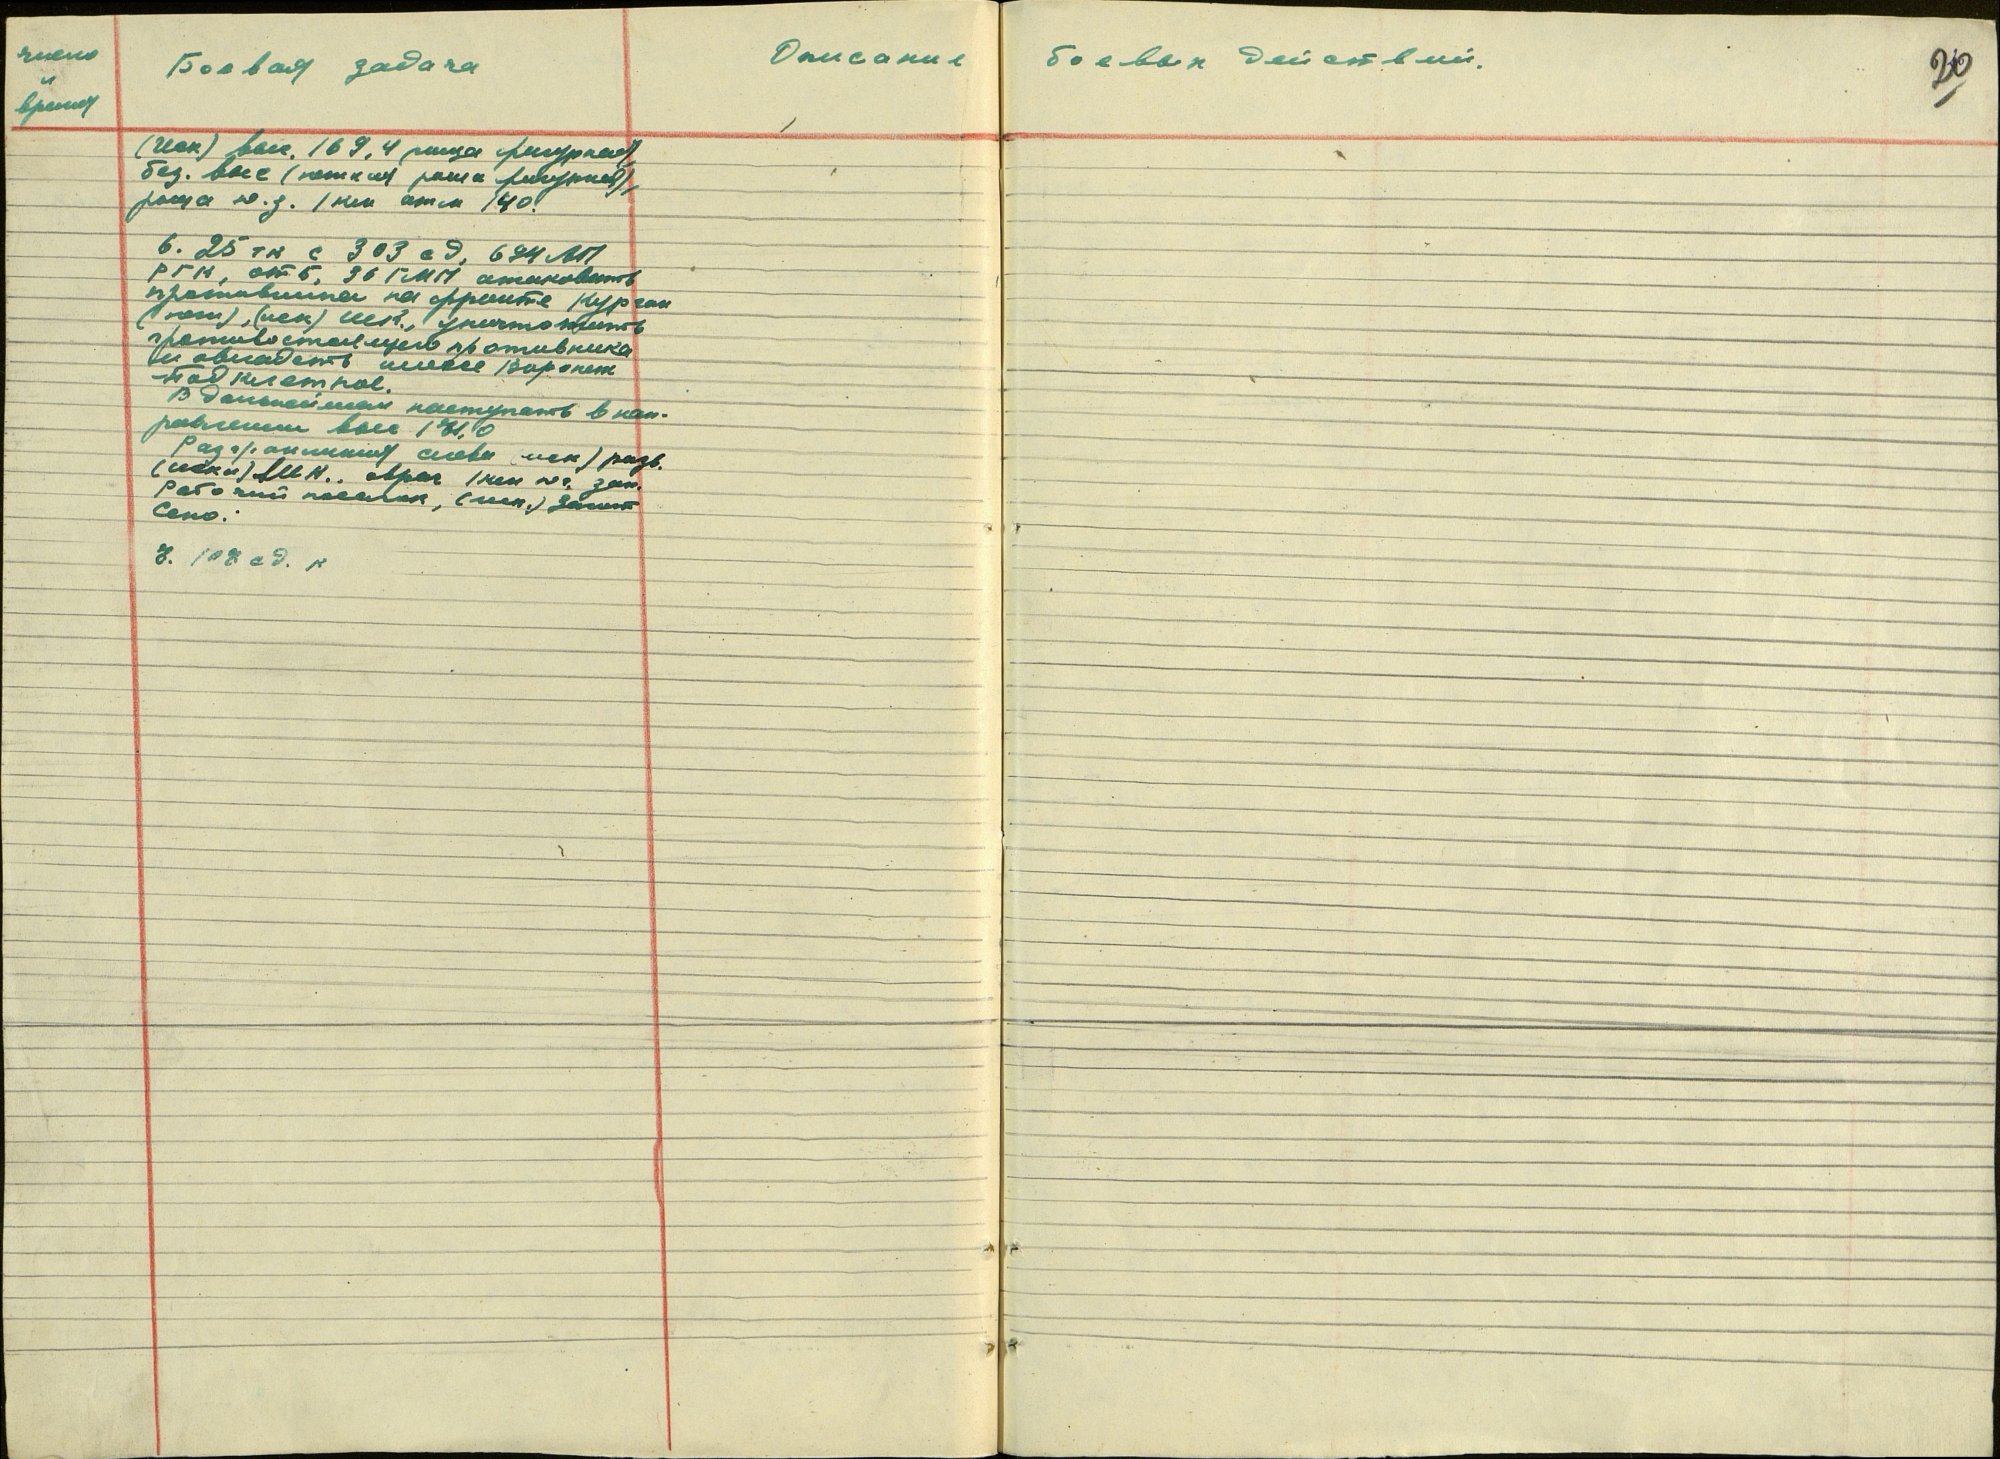 число
и
время
Боевая задача
Описание боевых действий.
20
(иск) выс. 169,4 роща фигурная,
без. выс (южная роща фигурная),
роща ю.з. 1 км отм 140.
6. 25 тк с 303 сд, АП
РГК, 36 ГМП атаковать
противника на фронте Курган
(иск) уничтожить
противостоящего противника
и овладеть Воронеж
Подклетное.
В дальнейшем наступать в нап-
равлении выс
Разгранлиния слева (иск) разв.
овраг 1 км зап.
Рабочий поселок, (иск.)
Сено.
7. 107 сд. к